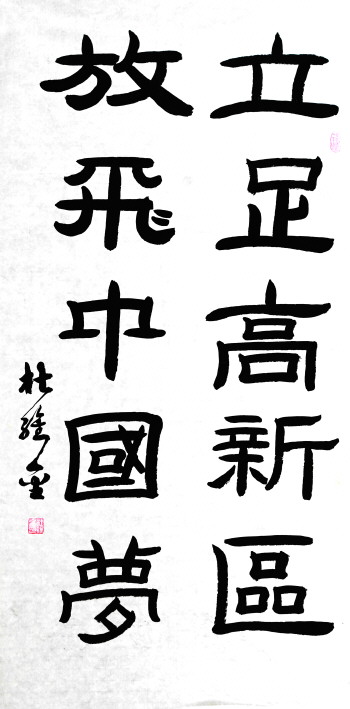 立足高新區
放飛中國夢